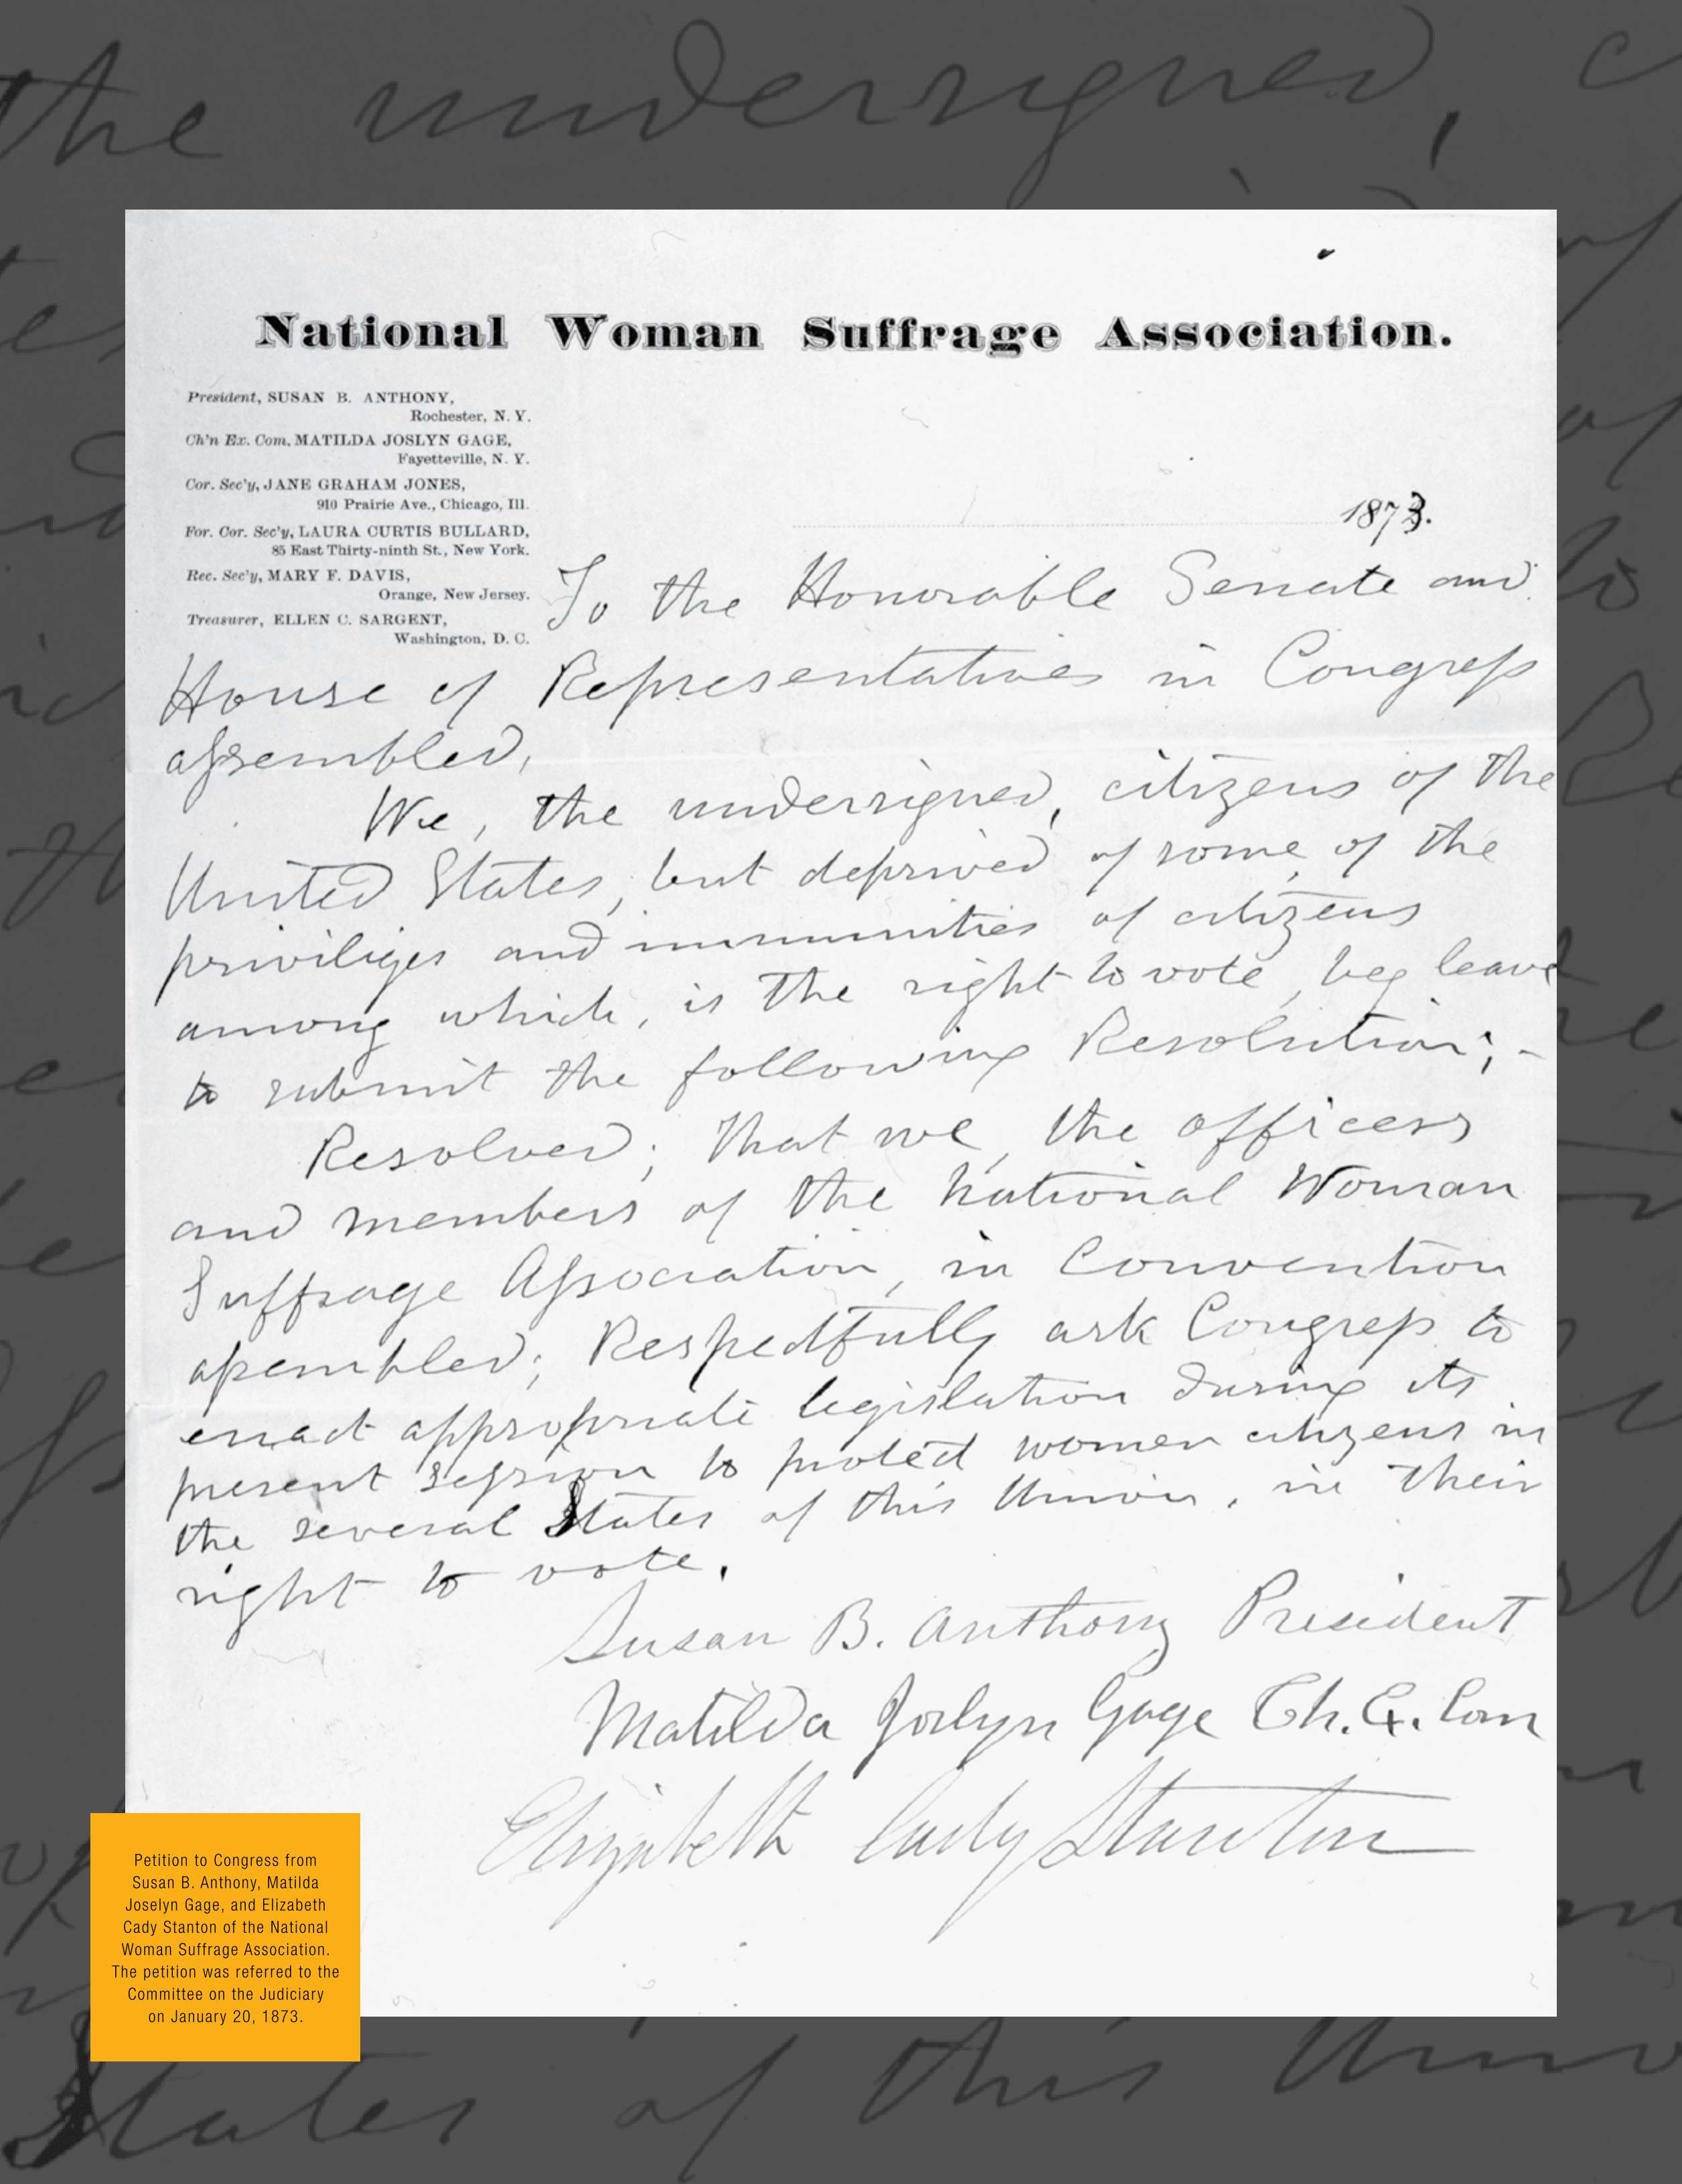 the undersigned, c
National Woman Suffrage Association.
President, SUSAN B. ANTHONY,
Rochester, N. Y.
Ch'n Ex. Com, MATILDA JOSLYN GAGE,
Fayetteville, N. Y.
Cor. Sec'y, JANE GRAHAM JONES,
910 Prairie Ave., Chicago, Ill.
For. Cor. Sec'y, LAURA CURTIS BULLARD,
85 East Thirty-ninth St., New York.
Rec. Sec'y, MARY F. DAVIS,
Orange, New Jersey.
Treasurer, ELLEN C. SARGENT,
Washington, D. C.
1873.
To the Honorable Senate and
House of Representatives in Congress
assembled,
We, the undersigned, citizens of the
United States, but deprived of some of the
priviliges and immunities of citizens
among which, is the right to vote, beg leave
to submit the following Resolution; -
Resolved; That we, the officers
and members of the National Woman
Suffrage Association, in Convention
assembled; Respectfully ask Congress to
enact appropriate legislation during its
present session to protect women citizens in
the several States of this Union, in their
right to vote.
Susan B. Anthony President
Matilda Joslyn Gage Ch. Ex. Com
Elizabeth Cady Stanton
Petition to Congress from
Susan B. Anthony, Matilda
Joselyn Gage, and Elizabeth
Cady Stanton of the National
Woman Suffrage Association.
The petition was referred to the
Committee on the Judiciary
on January 20, 1873.
States of this Unio